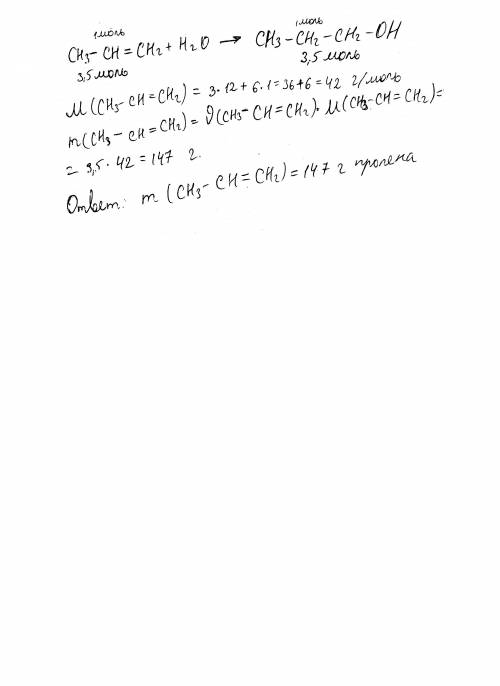 1 моль 1 моль
CH₃ – CH = CH₂ + H₂O → CH₃ – CH₂ – CH₂ – OH
3,5 моль 3,5 моль
M (CH₃ – CH = CH₂) = 3 · 12 + 6 · 1 = 36 + 6 = 42 г/моль
m (CH₃ – CH = CH₂) = ϑ (CH₃ – CH = CH₂) · M (CH₃ – CH = CH₂) =
= 3,5 · 42 = 147 г.
Ответ: m (CH₃ – CH = CH₂) = 147 г пропена